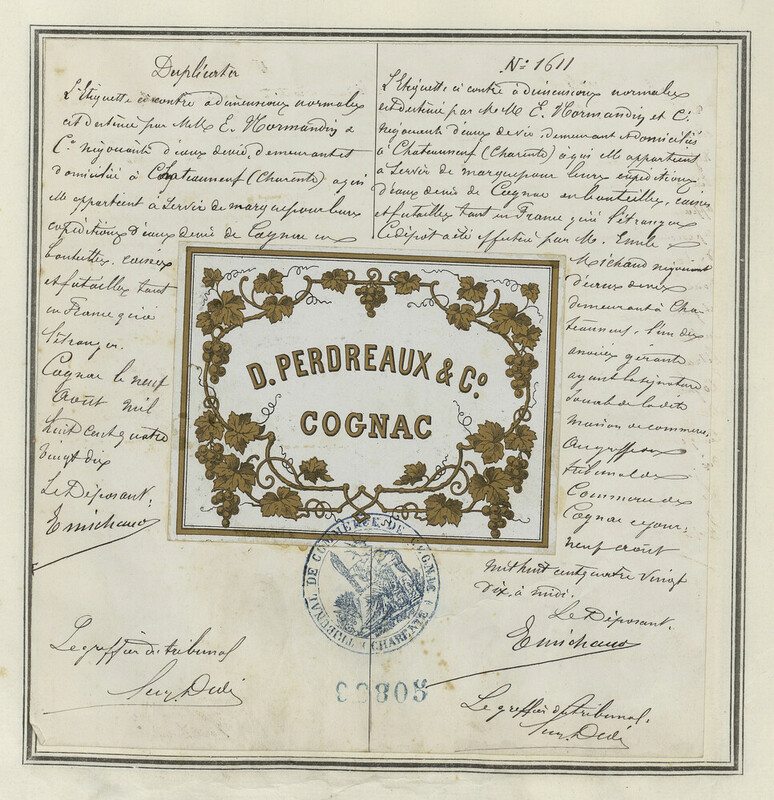 Duplicata
L'Etiquette ci contre a dimensions normales
est destinée par M.M. E. Normandin &
Co négociants d'eaux de vie, demeurant et
domiciliés à Chateauneuf (Charente) à qui
elle appartient à servir de marque pour leurs
expéditions d'eaux de vie de Cognac en
bouteilles, caisses
et futailles tant
en France qu'à
l'étranger.
Cognac le neuf
août mil
huit cent quatre
vingt dix
Le Déposant.
E Michaud
Le greffier du tribunal
No 1611
L'Etiquette ci contre a dimensions normales
est destinée par M.M. E. Normandin et Co
négociants d'eaux de vie, demeurant et domiciliés
à Chateauneuf (Charente) à qui elle appartient
à servir de marque pour leurs expéditions
d'eaux de vie de Cognac en bouteilles, caisses
et futailles tant en France qu'à l'étranger
Ce dépot a été effectué par M. Emile
Michaud négociant
d'eaux de vie
demeurant à Cha-
teauneuf, l'un des
associés gérants
ayant la signature
sociale de la dite
maison de commerce,
au greffe du
tribunal de
Commerce de
Cognac ce jour
neuf août
mil huit cent quatre vingt
dix, à midi.
Le Déposant.
E Michaud
Le greffier du tribunal.
D. PERDREAUX & Co
COGNAC
TRIBUNAL DE COMMERCE DE COGNAC (CHARENTE)
00805